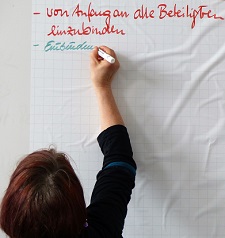 - von Anfang an alle Beteiligten
einzubinden
- Einbinden